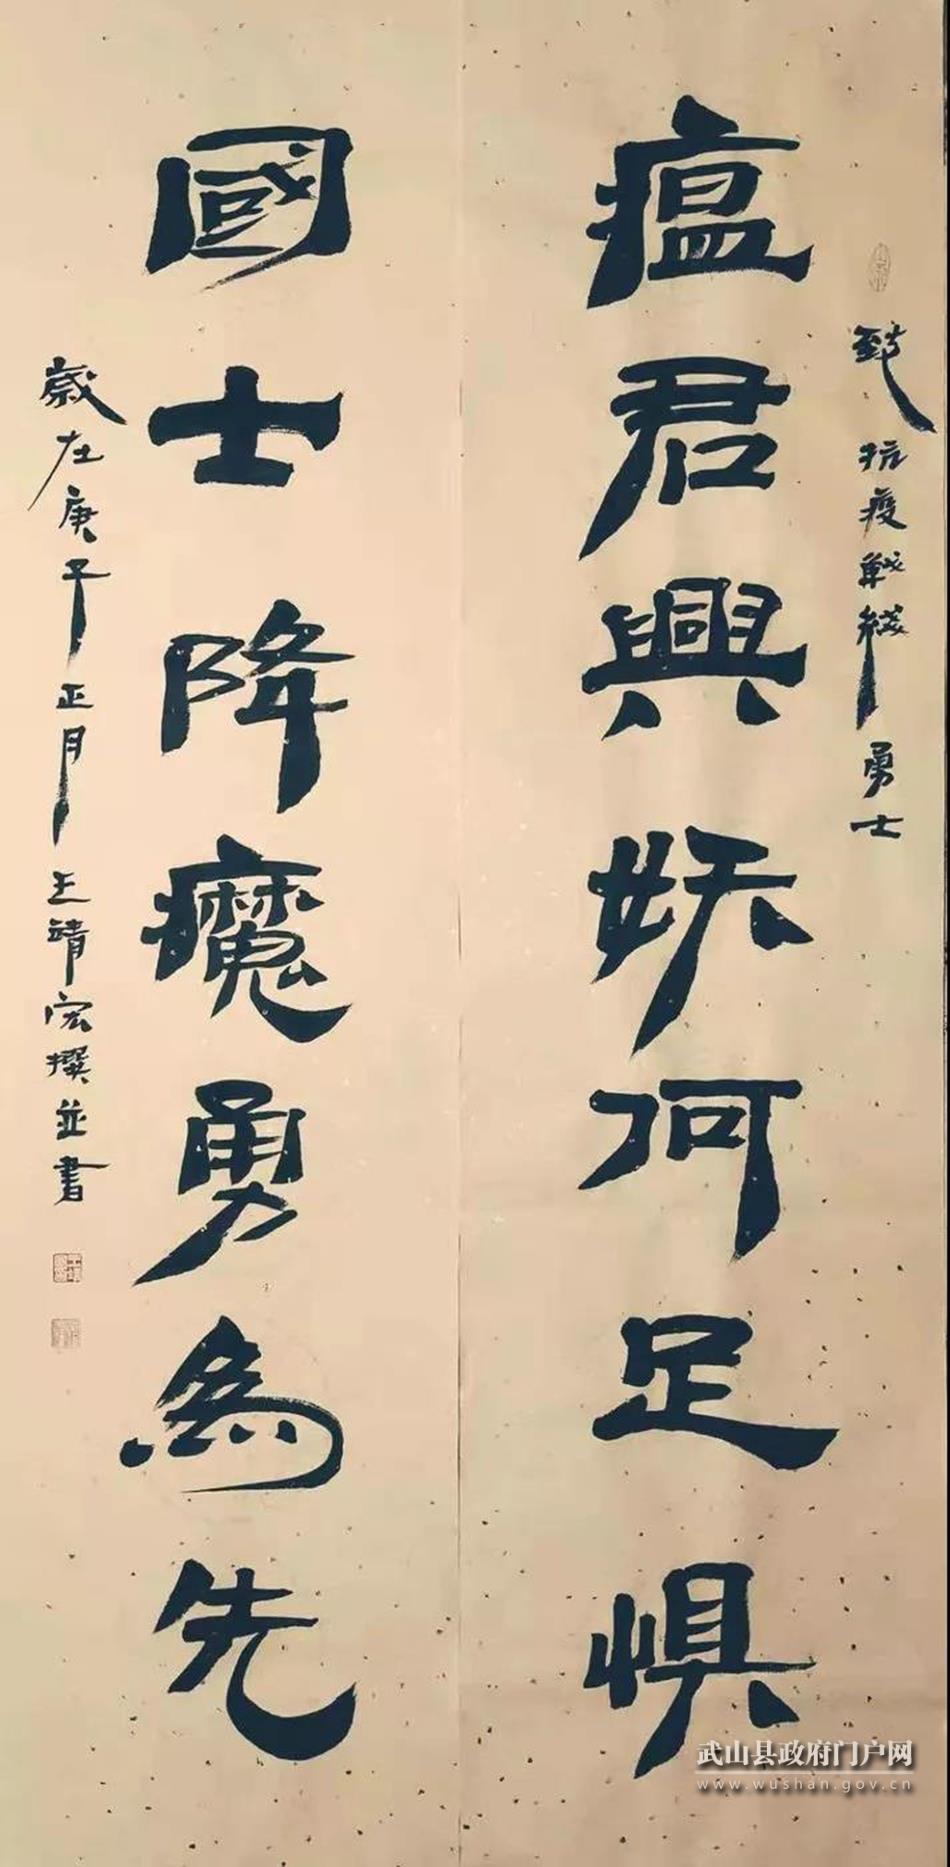 致抗疫戰綫勇士
瘟君興妖何足惧
國士降魔勇為先
歲在庚子正月王靖宏撰並書
武山县政府门户网
www.wushan.gov.cn